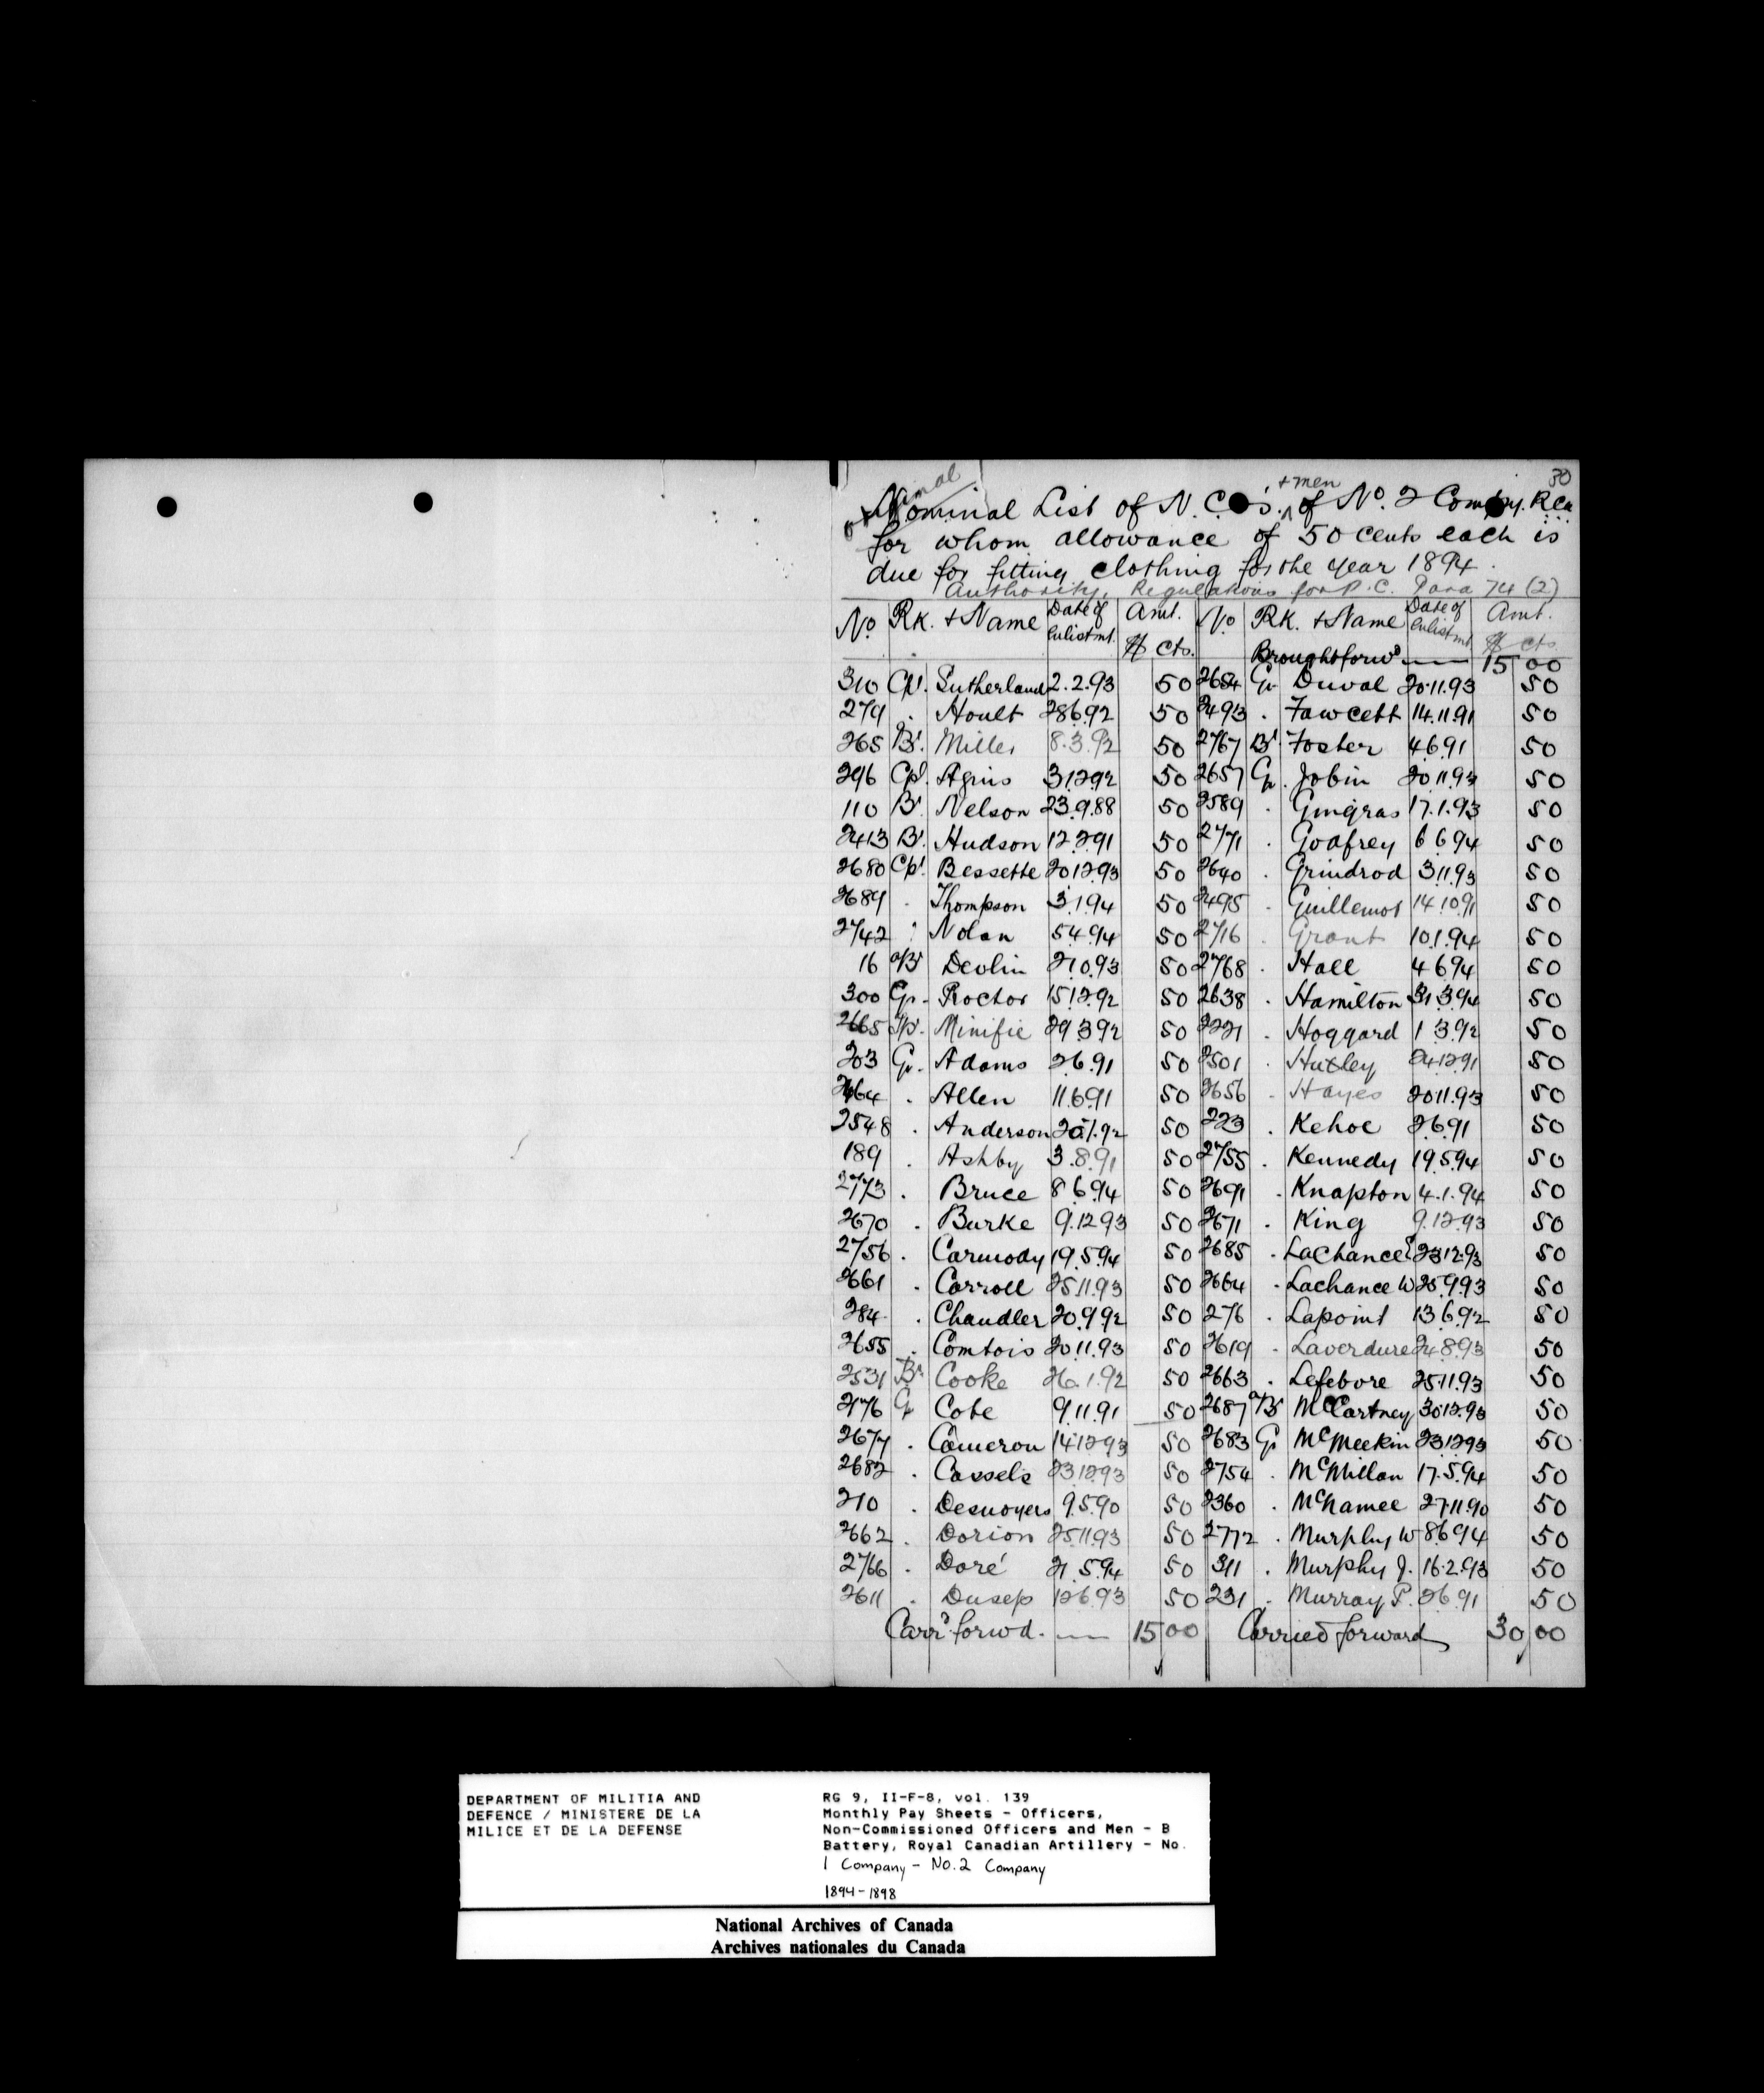 30
+ men
Nominal List of N.C.O's. of No. 2 Compy. RCA
for whom allowance of 50 cents each is
due for fitting clothing for the year 1894.
Authority, Regulations for P.C. Para 74 (2)
No. Rk. + Name Date of Enlistmt. Amt. $ cts. No. Rk. + Name Date of Enlistmt. Amt. $ cts
Brought forwd — 15 00
310 Cpl. Sutherland 2.2.93 50 2654 Gr Duval 20.11.93 50
279 . Hoult 28 6.92 50 2493 . Fawcett 14.11.91 50
265 Br. Miller 8.3.92 50 2767 Br Foster 4 6 91 50
296 Cpl. Agius 31 12 92 50 2657 Gr. Jobin 20 11 93 50
110 Br. Nelson 23.9.88 50 2589 . Gingras 17.1.93 50
2413 Br. Hudson 12.2 91 50 2771 . Godfrey 6 6 94 50
2680 Cpl. Bessette 20 12 93 50 2640 . Grindrod 3.11.93 50
2689 . Thompson 3.1.94 50 2495 . Guillemot 14.10.91 50
2742 " Nolan 5.4.94 50 2716 . Grant 10.1.94 50
16 a/Br Devlin 2.10.93 50 2768 . Hall 4 6.94 50
300 Gr. Proctor 15.12.92 50 2638 . Hamilton 31.3.94 50
2665 a/Br. Minifie 29.3.92 50 2221 . Hoggard 1 3.92 50
203 Gr. Adams 2.6.91 50 2501 . Huxley 24.12.91 50
2464 . Allen 11.6.91 50 2656 . Hayes 20.11.93 50
2548 . Anderson 20.1.92 50 223 . Kehoe 2.6.91 50
189 . Ashby 3.8.91 50 2755 . Kennedy 19.5.94 50
2773 . Bruce 8 6.94 50 2691 . Knapton 4.1.94 50
2670 . Burke 9.12.93 50 2671 . King 9.12.93 50
2756 . Carmody 19.5.94 50 2685 . LaChance 23.12.93 50
2661 . Carroll 25.11.93 50 2664 . Lachance W 25.9.93 50
284 . Chandler 20.9.92 50 276 . Lapoint 13 6.92 50
2655 . Comtois 20.11.93 50 2619 . Laverdure 24.8.93 50
2531 Br Cooke 26.1.92 50 2663 . Lefebvre 25.11.93 50
2476 Gr Cote 9.11.91 50 2687 a/Br McCartney 30.12.93 50
2677 . Cameron 14.12.93 50 2683 Gr McMeekin 23.12.93 50
2682 . Cassels 23.12.93 50 2754 . McMillan 17.5.94 50
210 . Desnoyers 9.5.90 50 2360 . McNamee 27.11.90 50
2662 . Dorion 25.11.93 50 2772 . Murphy W 8.6.94 50
2766 . Doré 21.5.94 50 311 . Murphy J. 16.2.93 50
2611 . Dusep 12.6.93 50 231 . Murray P. 2.6.91 50
Carrd. forwd. — 15 00 Carried forward 30 00
DEPARTMENT OF MILITIA AND
DEFENCE / MINISTERE DE LA
MILICE ET DE LA DEFENSE
RG 9, II-F-8, vol. 139
Monthly Pay Sheets - Officers,
Non-Commissioned Officers and Men - B
Battery, Royal Canadian Artillery - No.
1 Company - No. 2 Company
1894-1898
National Archives of Canada
Archives nationales du Canada